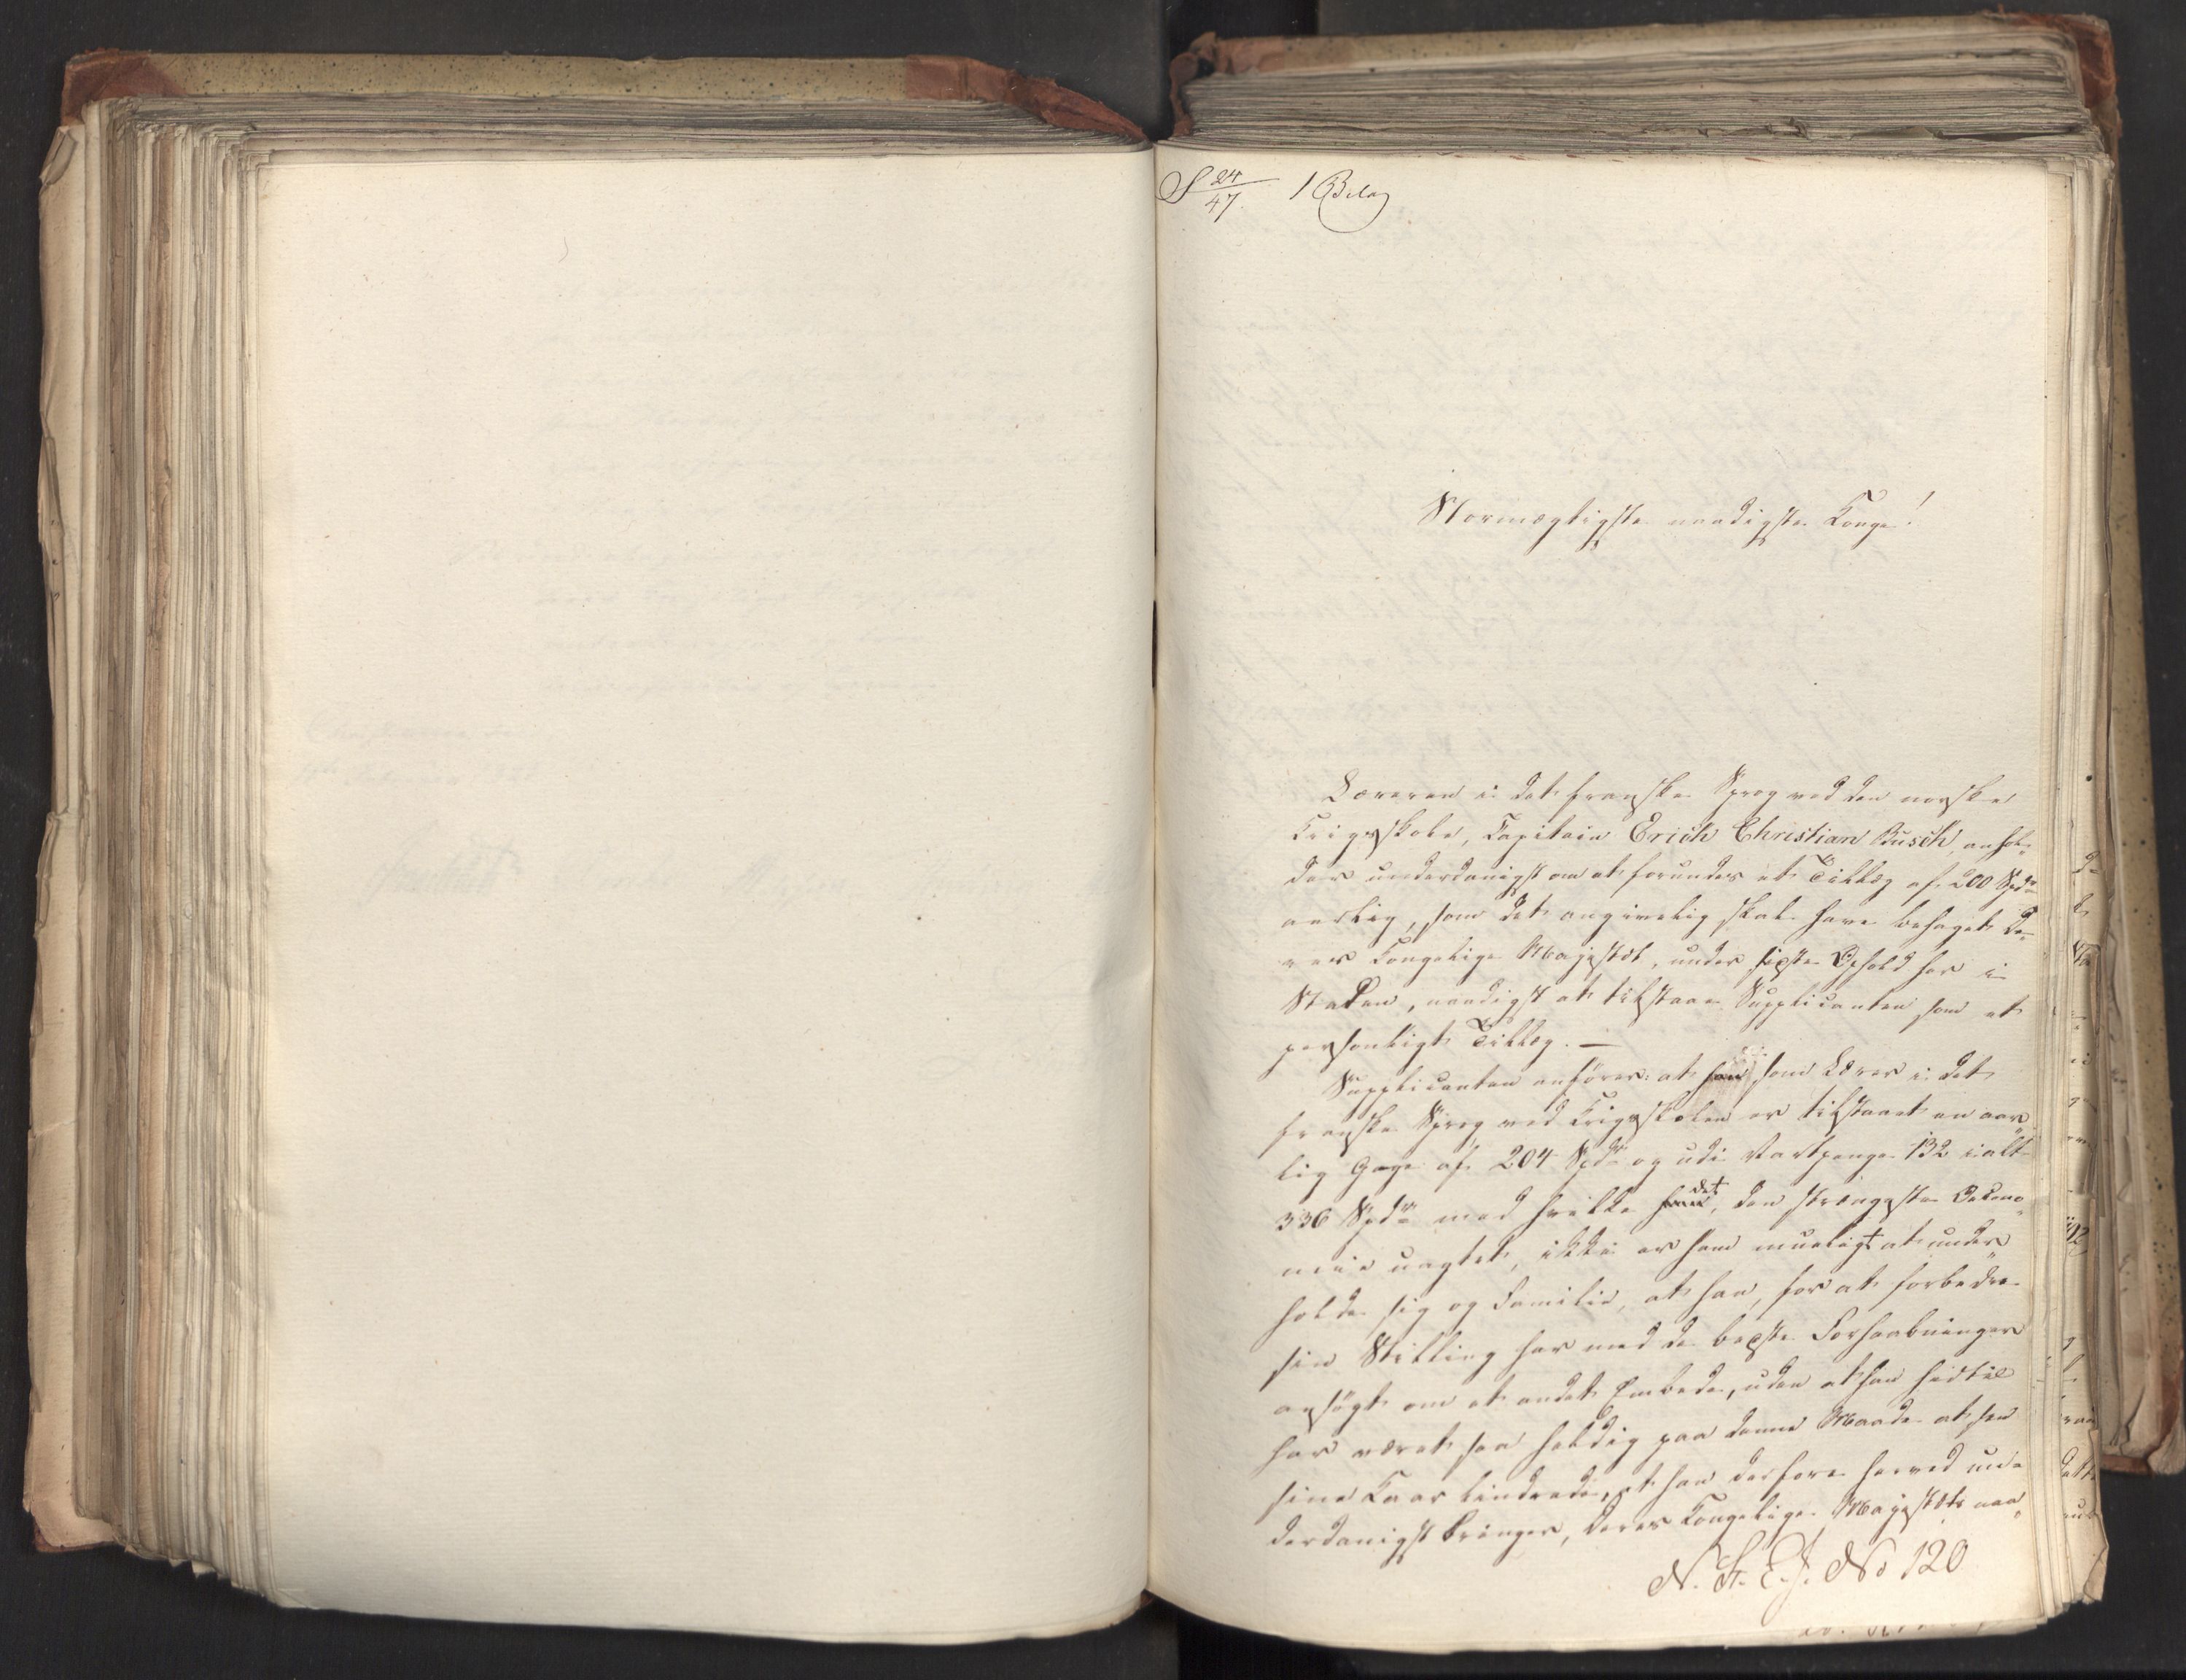 S 24/47. 1 Bilag
Stormægtigste naadigste Konge!
Læreren i det franske Sprog ved den norske
Krigsskole, Capitain Erich Christian Busch, anhol-
der underdanigst om at forundes et Tillæg af 200 Spdr
aarlig, som det angivelig skal have behaget De-
res Kongelige Majestæt, under sidste Ophold her i
Staden, naadigst at tilstaae Supplicanten som et
personligt Tillæg. —
Supplicanten anfører: at han som Lærer i det
franske Sprog ved Krigsskolen er tilstaaet en aar-
lig Gage af 204 Spdr og udi Vartpenge 132 ialt
336 Spdr med hvilke det, den strængeste Oekono-
mie uagtet, ikke er ham mueligt at under-
holde sig og Familie, at han, for at forbedre
sin Stilling har med de bedste Forhaabninger
ansøgt om et andet Embede, uden at han hidtil
har været saa heldig paa denne Maade at see
sine Kaar lindrede, at han derfore herved un-
derdanigst bringer, Deres Kongelige Majestæts naa-
N. St. E. J. No 120